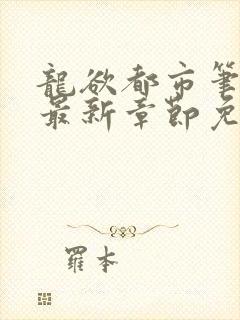 龍欲都市筆
最新章節免
羅本